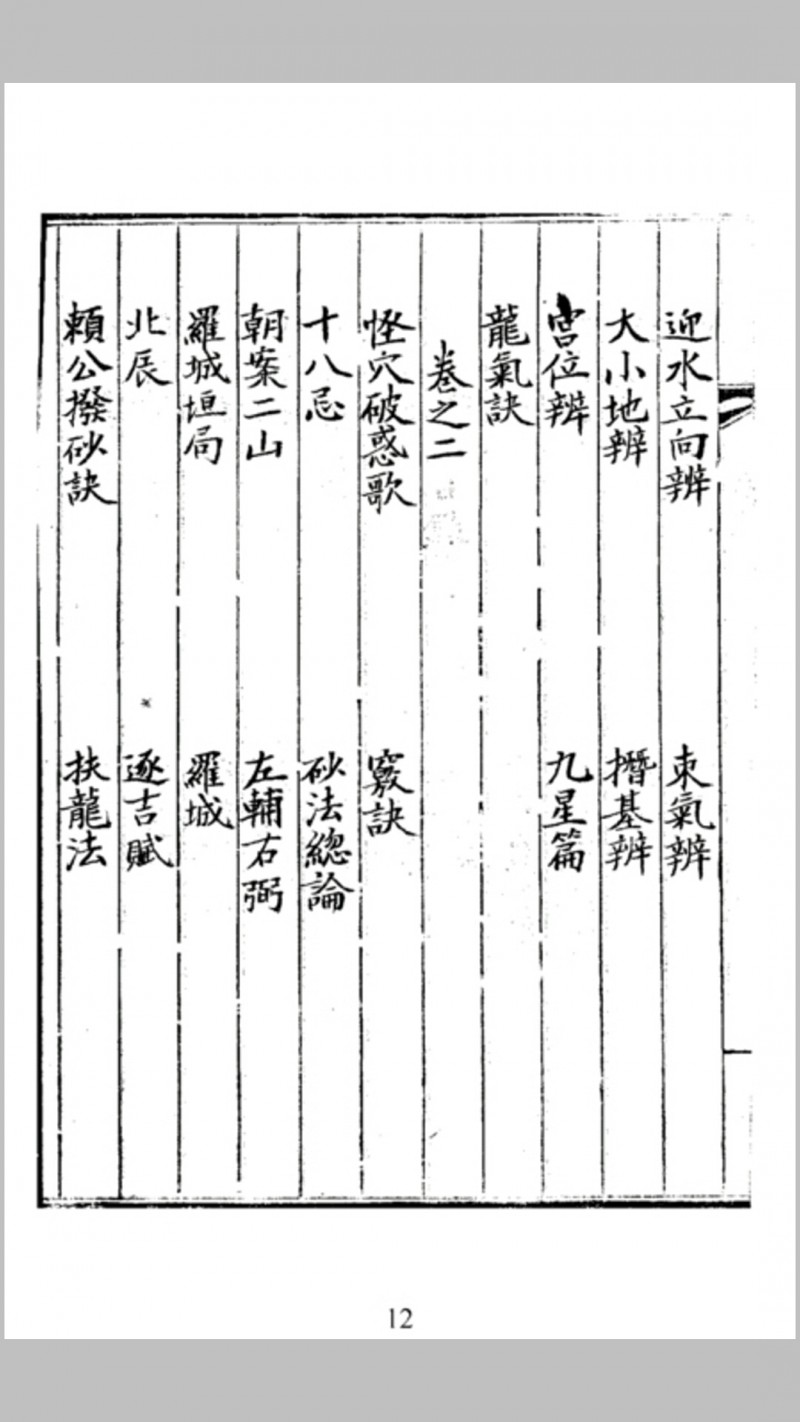 迎水立向辨　束氣辨
大小地辨　撍基辨
宮位辨　九星篇
龍氣訣
卷之二
怪穴破惑歌　竅訣
十八忌　砂法總論
朝案二山　左輔右弼
羅城垣局　羅城
北辰　逐吉賦
賴公撥砂訣　扶龍法
12